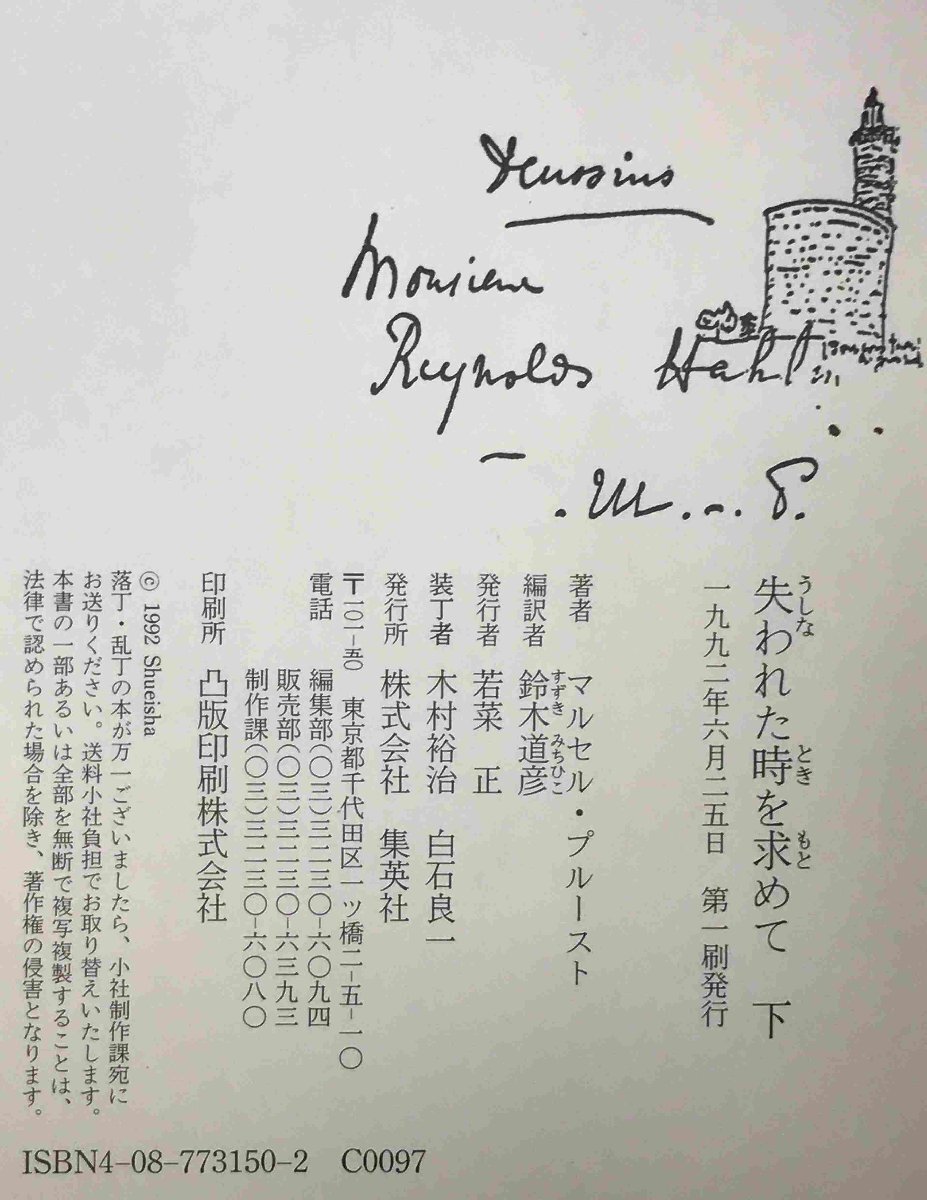 Monsieur
Reynaldo Hahn
M. P.
失われた時を求めて　下
うしな　とき　もと
一九九二年六月二五日　第一刷発行
著者　マルセル・プルースト
編訳者　鈴木道彦
すずき　みちひこ
発行者　若菜　正
装丁者　木村裕治　白石良一
発行所　株式会社　集英社
〒一〇一-五〇　東京都千代田区一ツ橋二-五-一〇
電話　編集部(〇三)三二三〇-六〇九四
販売部(〇三)三二三〇-六三九三
制作課(〇三)三二三〇-六〇八〇
印刷所　凸版印刷株式会社
© 1992 Shueisha
落丁・乱丁の本が万一ございましたら、小社制作課宛に
お送りください。送料小社負担でお取り替えいたします。
本書の一部あるいは全部を無断で複写複製することは、
法律で認められた場合を除き、著作権の侵害となります。
ISBN4-08-773150-2　C0097